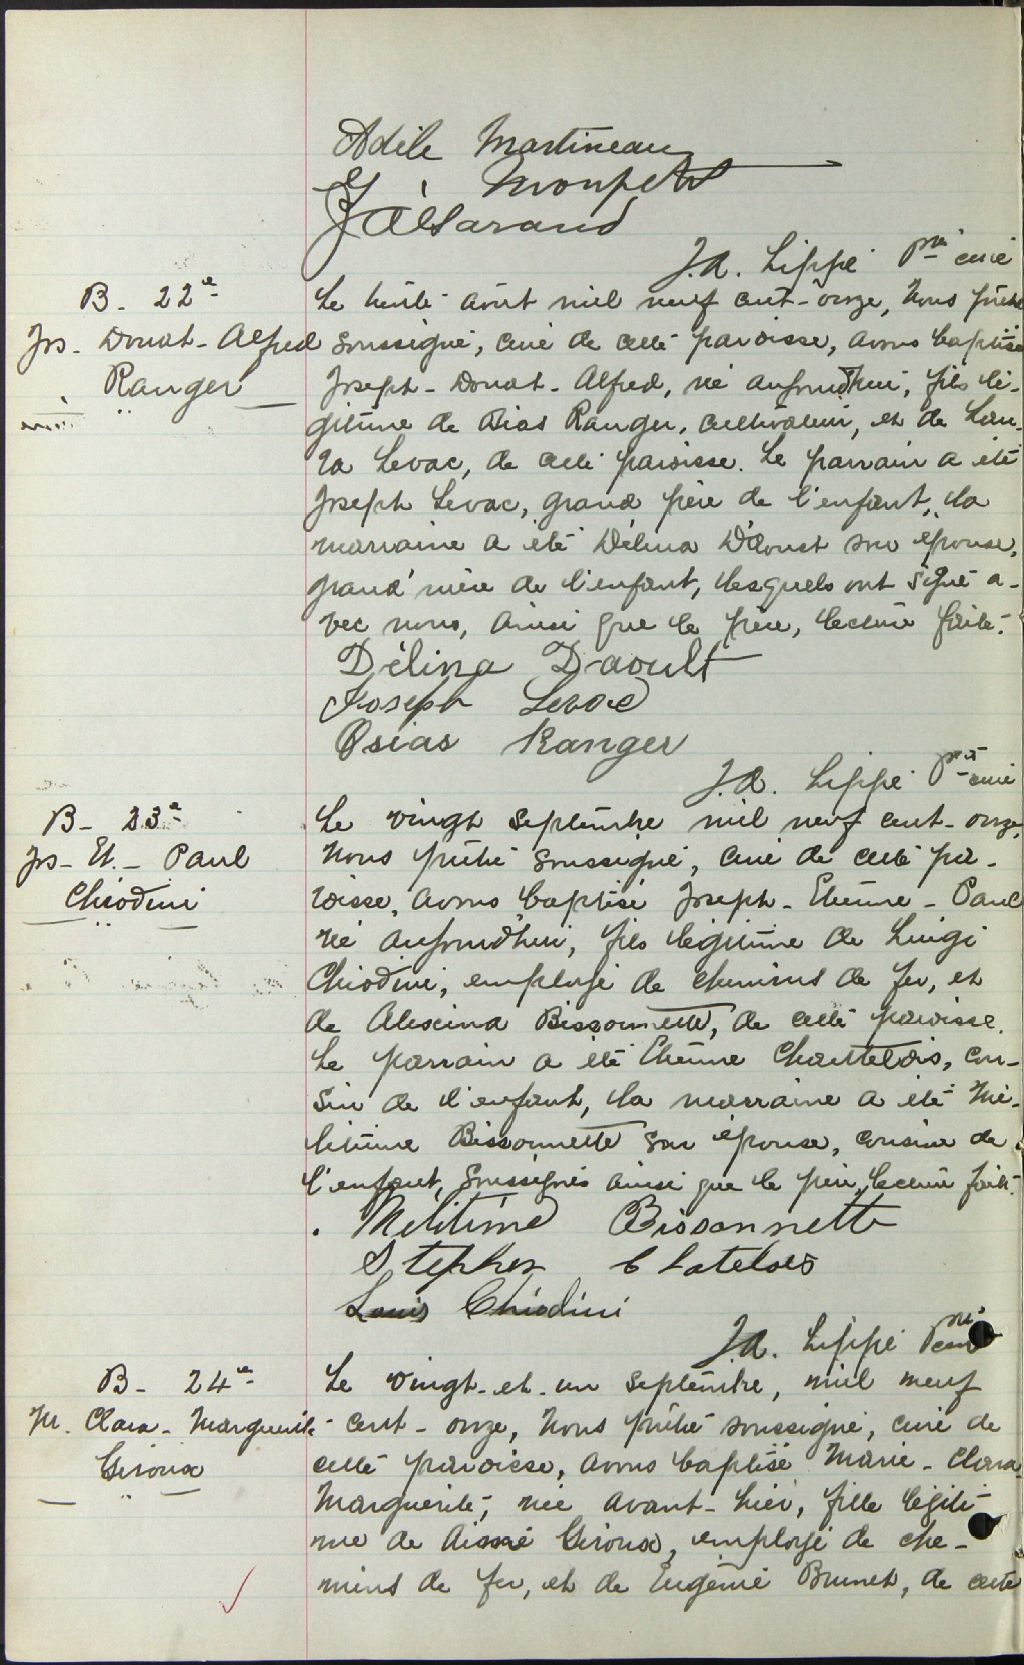 Adèle Martineau
Monpetit
J. A. Lippé Ptre curé
B. 22e
Jos. Donat-Alfred
Ranger
Le trente août mil neuf cent-onze, Nous prêtre
soussigné, curé de cette paroisse, avons baptisé
Joseph-Donat-Alfred, né aujourd'hui, fils lé-
gitime de Osias Ranger, cultivateur, et de Lau-
ra Levac, de cette paroisse. Le parrain a été
Joseph Levac, grand père de l'enfant, la
marraine a été Délina D'aoust son épouse,
grand'mère de l'enfant, lesquels ont signé a-
vec nous, ainsi que le père, lecture faite.
Délina Daoult
Joseph Levac
Osias Ranger
J. A. Lippé Ptre curé
B- 23e
Jos- Et.- Paul
Chiodini
Le vingt septembre mil neuf cent-onze,
Nous prêtre soussigné, curé de cette pa-
roisse, avons baptisé Joseph-Etienne-Paul
né aujourd'hui, fils légitime de Luigi
Chiodini, employé de chemins de fer, et
de Alexina Bissonnette, de cette paroisse.
Le parrain a été Etienne Chattelois, cou-
sin de l'enfant, la marraine a été Mé-
litime Bissonnette son épouse, cousine de
l'enfant, soussignés ainsi que le père, lecture faite.
Melitime Bissonnette
Stephen Chatelois
Louis Chiodini
J. A. Lippé Ptre curé
B- 24e
M. Clara-Marguerite
Giroux
Le vingt-et-un septembre, mil neuf
cent-onze, Nous prêtre soussigné, curé de
cette paroisse, avons baptisé Marie-Clara
Marguerite, née avant-hier, fille légiti-
me de Aimé Giroux, employé de che-
mins de fer, et de Eugénie Brunet, de cette